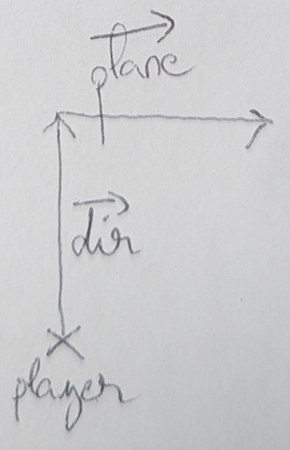 plane
dir
player